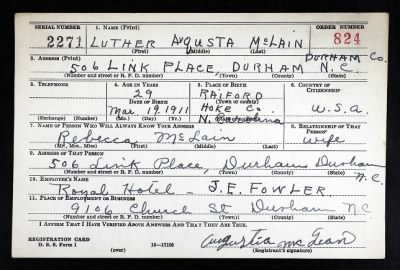 SERIAL NUMBER 1. NAME (Print) ORDER NUMBER
2271 LUTHER AUGUSTA McLAIN 824
(First) (Middle) (Last)
2. ADDRESS (Print) DURHAM CO.
506 LINK PLACE, DURHAM N.C.
(Number and street or R. F. D. number) (Town) (County) (State)
3. TELEPHONE 4. AGE IN YEARS 5. PLACE OF BIRTH 6. COUNTRY OF CITIZENSHIP
29 RAIFORD
DATE OF BIRTH HOKE CO.
Mar. 19, 1911 N. Carolina U.S.A.
(Exchange) (Number) (Mo.) (Day) (Yr.) (State or country)
7. NAME OF PERSON WHO WILL ALWAYS KNOW YOUR ADDRESS 8. RELATIONSHIP OF THAT PERSON
Rebecca McLain wife
(Mr., Mrs., Miss) (First) (Middle) (Last)
9. ADDRESS OF THAT PERSON
506 Link Place, Durham Durham N.C.
(Number and street or R. F. D. number) (Town) (County) (State)
10. EMPLOYER'S NAME
Royal Hotel - J.E. FOWLER
11. PLACE OF EMPLOYMENT OR BUSINESS
Church St Durham NC
(Number and street or R. F. D. number) (Town) (County) (State)
I AFFIRM THAT I HAVE VERIFIED ABOVE ANSWERS AND THAT THEY ARE TRUE.
REGISTRATION CARD
D. S. S. Form 1 (over) 16-17105 (Registrant's signature)